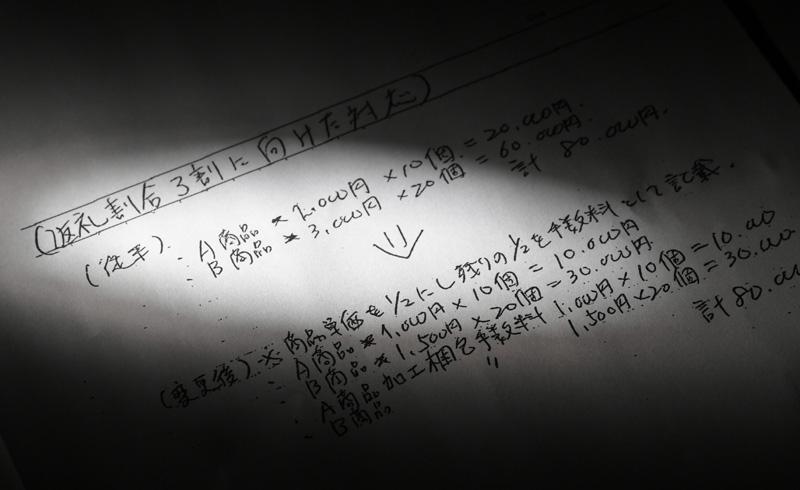 (返礼割合3割に向けた対応)
(従来)
・A商品 * 2,000円 ×10個 = 20,000円.
・B商品 * 3,000円 ×20個 = 60,000円.
計 80,000円.
⇓
(変更後) ※商品単価を1/2にし残りの1/2を手数料として記載.
・A商品 * 1,000円 ×10個 = 10,000円
・B商品 * 1,500円 ×20個 = 30,000円.
・A商品加工梱包手数料 1,000円×10個 = 10,00
・B商品 〃 1,500円×20個 = 30,00
計80,00